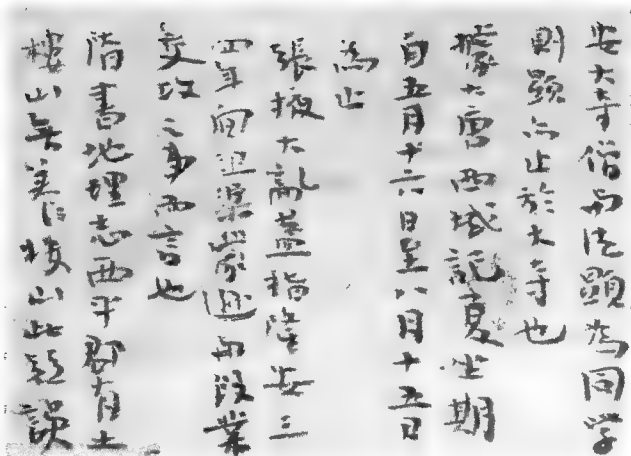 安大寺僧与法顯為同学
則顯亦止於大寺也
據大唐西域記夏坐期
自五月十六日至八月十五日
為止
張掖大亂蓋指隆安三
四年间沮渠蒙遜与段業
交攻之事而言也
隋書地理志西平郡有土
樓山無養樓山此疑誤